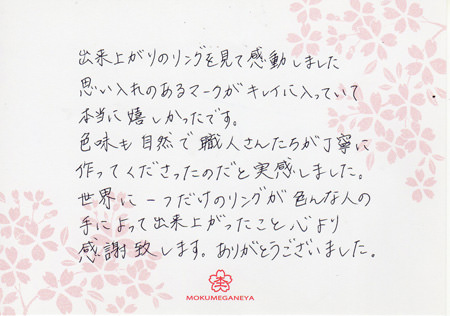 出来上がりのリングを見て感動しました
思い入れのあるマークがキレイに入っていて
本当に嬉しかったです。
色味も自然で職人さんたちが丁寧に
作ってくださったのだと実感しました。
世界に一つだけのリングが色んな人の
手によって出来上がったこと心より
感謝致します。ありがとうございました。
MOKUMEGANEYA